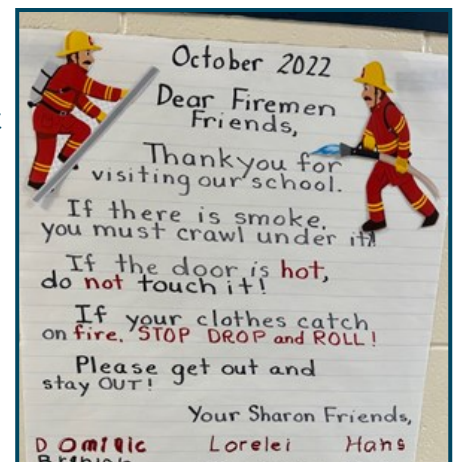 October 2022
Dear Firemen
Friends,
Thank you for
visiting our school.
If there is smoke,
you must crawl under it!
If the door is hot,
do not touch it!
If your clothes catch
on fire, STOP DROP and ROLL!
Please get out and
stay OUT!
Your Sharon Friends,
Dominic Lorelei Hans